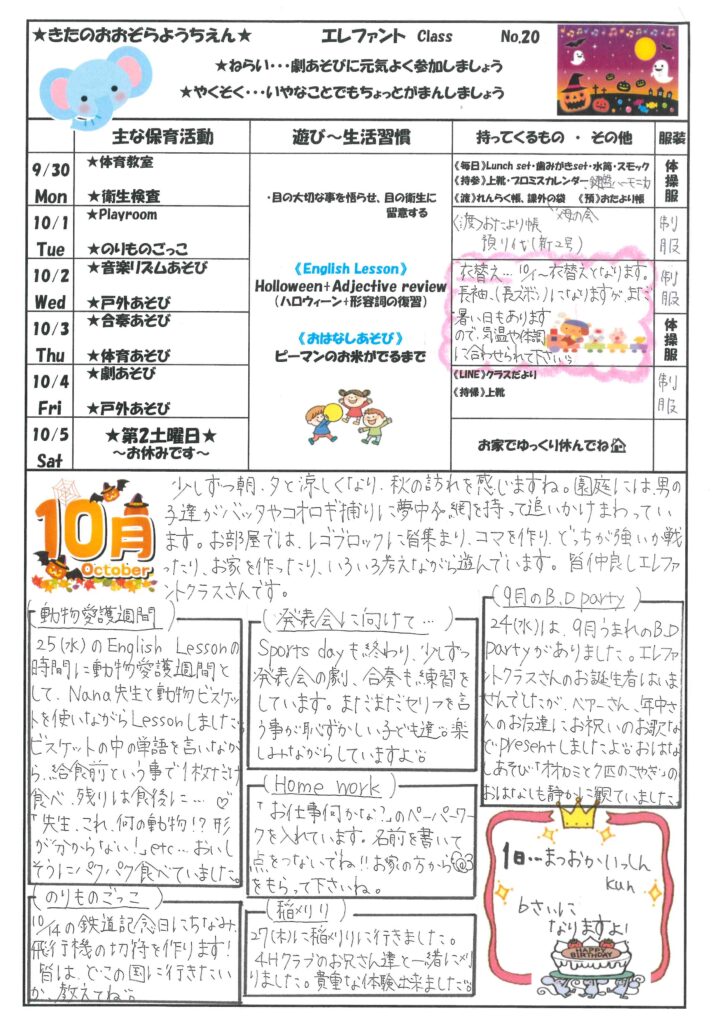 ★きたのおおぞらようちえん★　エレファント Class　No.20
★ねらい・・・劇あそびに元気よく参加しましょう
★やくそく・・・いやなことでもちょっとがまんしましょう
主な保育活動　遊び～生活習慣　持ってくるもの ・ その他　服装
9/30 Mon
★体育教室
★衛生検査
・目の大切な事を悟らせ、目の衛生に
留意する
《毎日》Lunch set・歯みがきset・水筒・スモック
《持参》上靴・プロミスカレンダー・鍵盤ハーモニカ
《渡》れんらく帳、課外の袋　《預》おたより帳
体操服
10/1 Tue
★Playroom
★のりものごっこ
〈渡〉おたより帳
預り代(新2号)
制服
10/2 Wed
★音楽リズムあそび
★戸外あそび
《English Lesson》
Holloween+Adjective review
（ハロウィーン+形容詞の復習）
衣替え… 10/1～衣替えとなります。
長袖、(長ズボン)になりますが、まだ
暑い日もあります
ので、気温や体調
に合わせられて下さい。
制服
10/3 Thu
★合奏あそび
★体育あそび
《おはなしあそび》
ピーマンのお米がでるまで
体操服
10/4 Fri
★劇あそび
★戸外あそび
《LINE》クラスだより
《持帰》上靴
制服
10/5 Sat
★第2土曜日★
～お休みです～
お家でゆっくり休んでね
10月
October
少しずつ朝、夕と涼しくなり、秋の訪れを感じますね。園庭には、男の
子達がバッタやコオロギ捕りに夢中！網を持って追いかけまわってい
ます。お部屋では、レゴブロックに皆集まり、コマを作り、どっちが強いか戦
ったり、お家を作ったり、いろいろ考えながら遊んでいます。皆仲良しエレファ
ントクラスさんです。
動物愛護週間
25(水)のEnglish Lessonの
時間に動物愛護週間と
して、Nana先生と動物ビスケッ
トを使いながらLessonしました。
ビスケットの中の単語を言いなが
ら、給食前という事で1枚だけ
食べ、残りは食後に…♡
「先生、これ、何の動物!?形
が分からない!」etc…おいし
そうにパクパク食べていました。
のりものごっこ
10/14の鉄道記念日にちなみ、
飛行機の切符を作ります!
皆は、どこの国に行きたいか
か、教えてね。
発表会に向けて…
Sports dayも終わり、少しずつ
発表会の劇、合奏も練習を
しています。まだまだセリフを言
う事が恥ずかしい子ども達。楽
しみながらしていますよ。
Home work
「お仕事何かな?」のペーパーワー
クを入れています。名前を書いて
点をつないでね!!お家の方から
をもらって下さいね。
稲刈り
27(木)に稲刈りに行きました。
4Hクラブのお兄さん達と一緒に刈
りました。貴重な体験出来ました。
9月のB.D party
24(水)は、9月うまれのB.D
partyがありました。エレファ
ントクラスさんのお誕生者はいま
せんでしたが、ベアーさん、年中さん
のお友達にお祝いのお歌な
どpresentしましたよ。おはな
しあそび「オオカミと7匹のこやぎ」の
おはなしも静かに観ていました。
1日…まつおかいっしん
kun
6さいに
なりますよ!
HAPPY BIRTHDAY